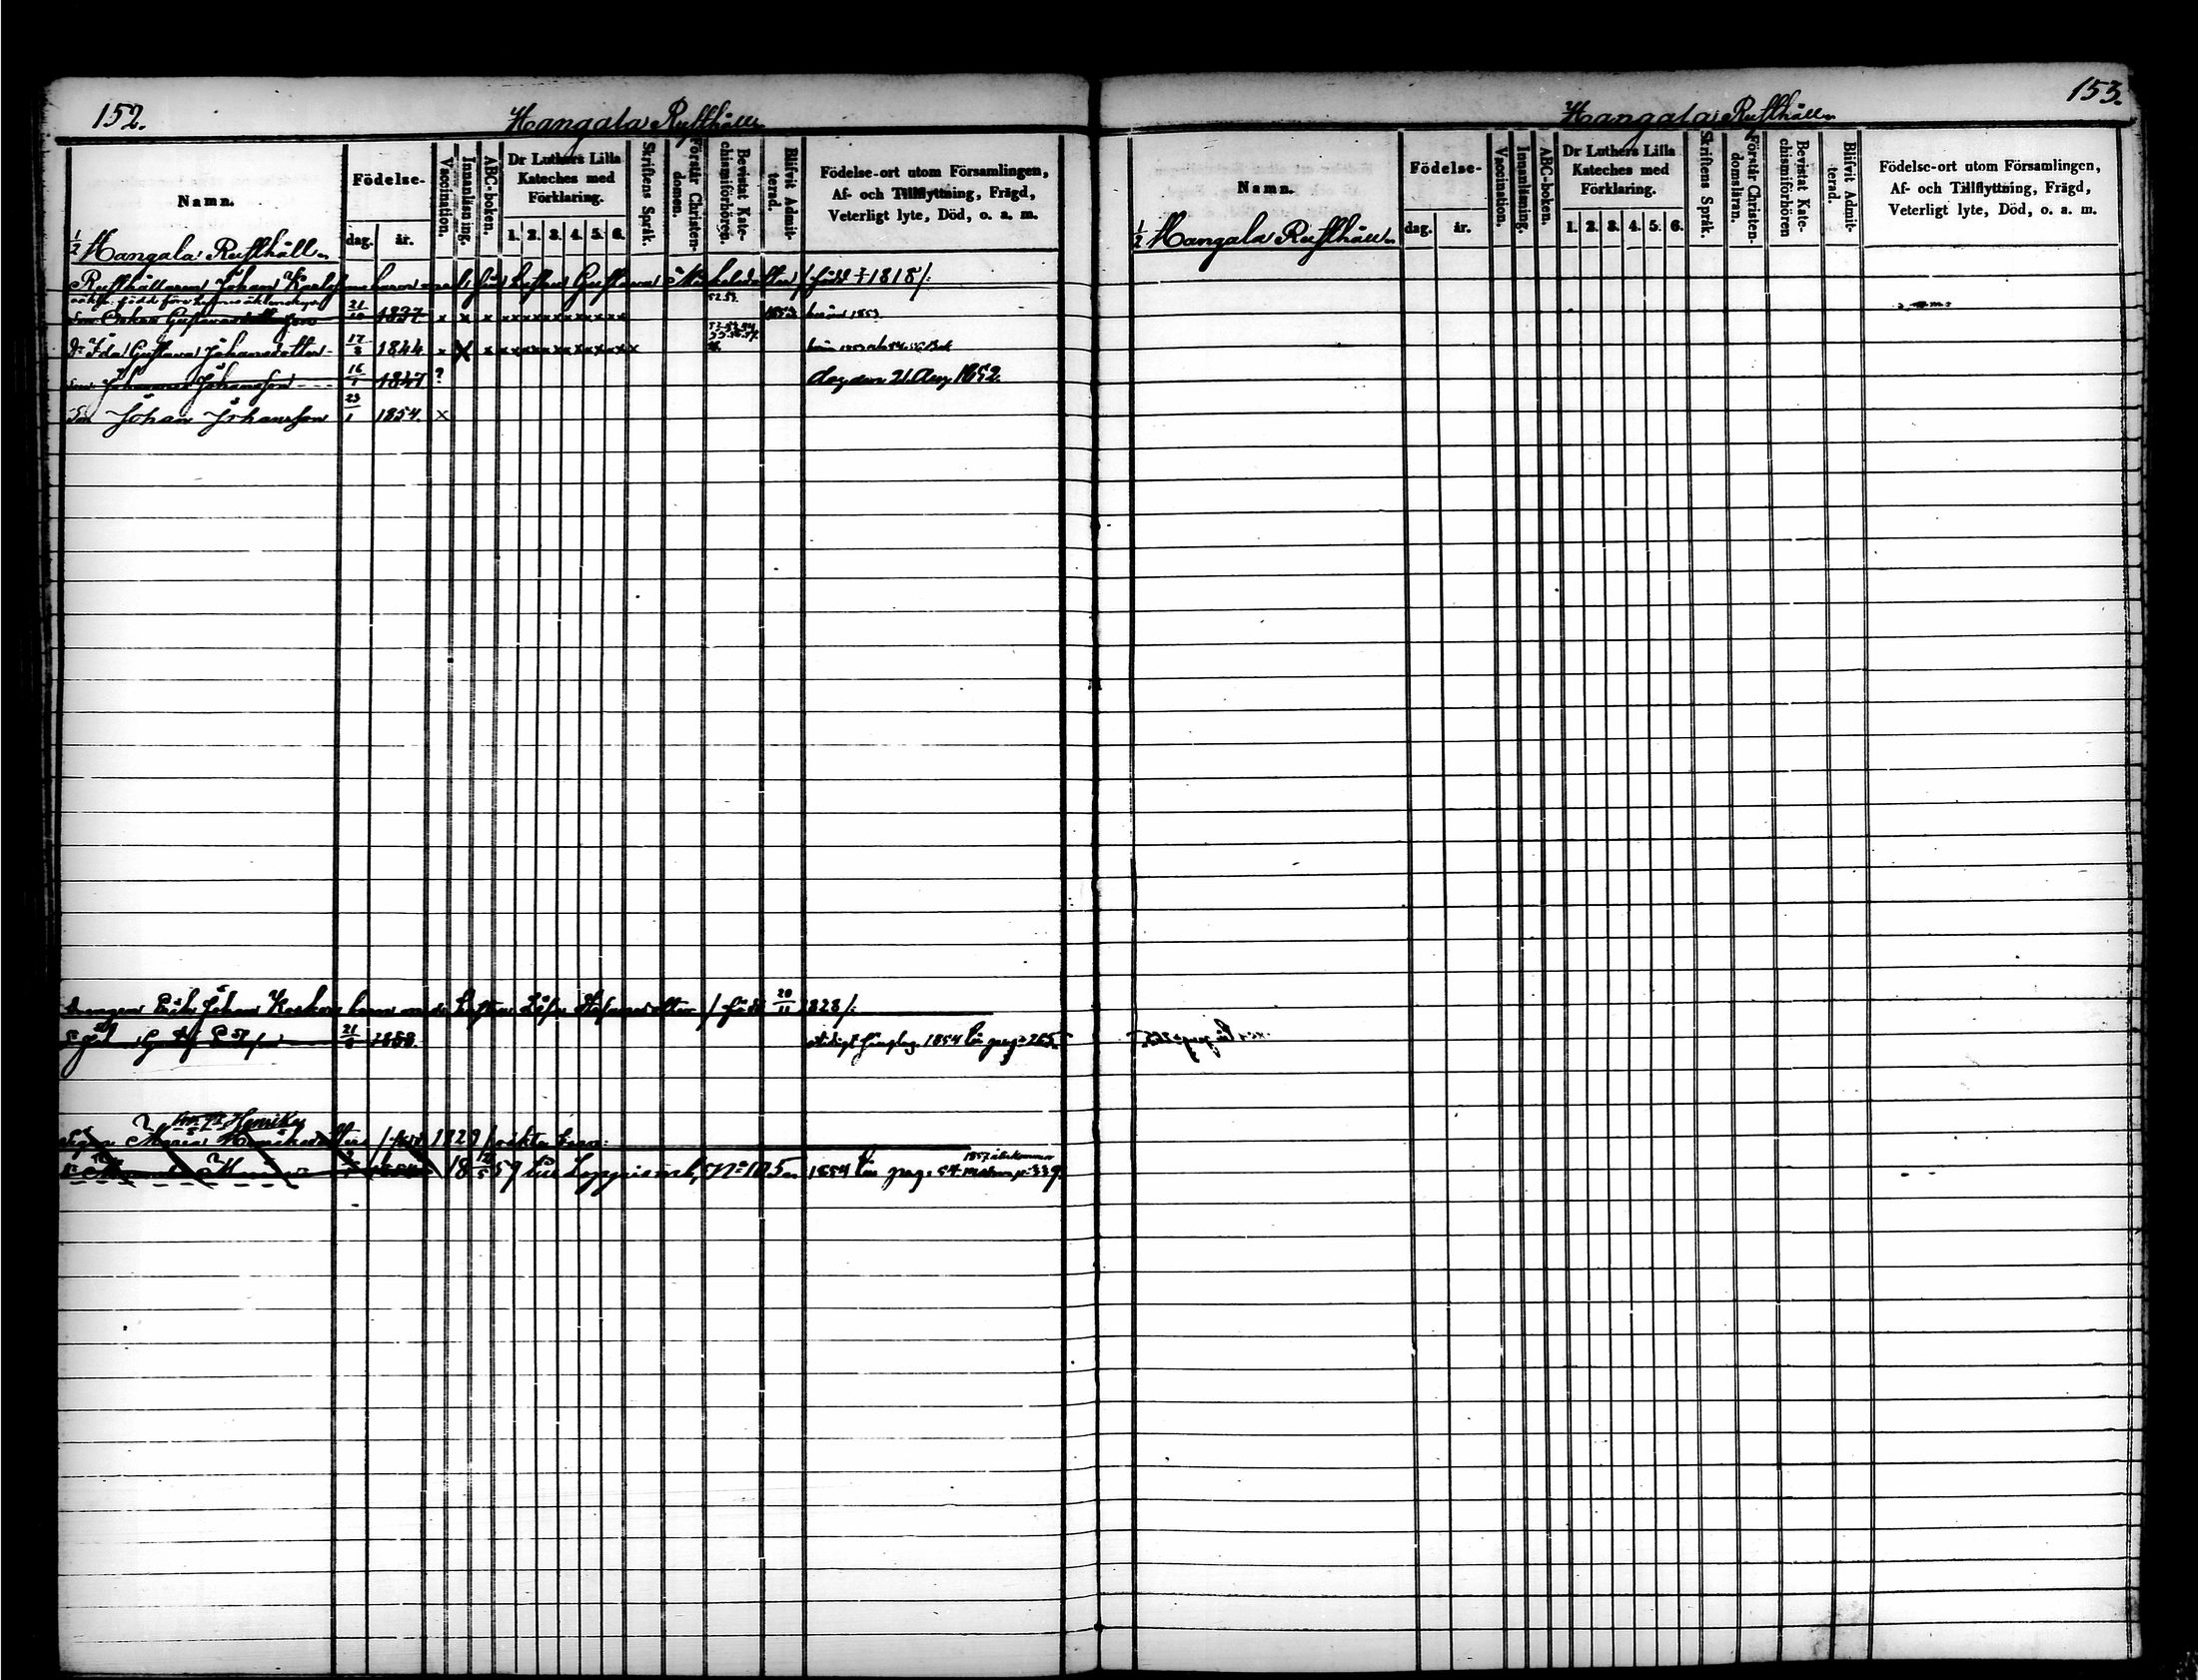 152.
Hangala Rusthåll
Namn.
Födelse-
dag.
år.
Vaccination.
Innanläsning.
ABC-boken.
Dr Luthers Lilla
Kateches med
Förklaring.
1. 2. 3. 4. 5. 6.
Skriftens Språk.
Förstår Christen-
domen.
Bevistat Kate-
chismiförhören.
Blifvit Admit-
terad.
Födelse-ort utom Församlingen,
Af- och Tillflyttning, Frägd,
Veterligt lyte, Död, o. a. m.
1/2 Hangala Rusthåll
Rusthållaren Johan Karlsson barn med hustru Gustava Mickelsdotter / född 1818 /:
52.53.
21/10 1837 x x x x x x x x x 1853
Dr Ida Gustava Johansdotter 17/3 1844 x X x x x x x x x x
Son Johannes Johansson 16/1 1847 ? dog den 21 Aug 1852.
23/1
Son Johan Johansson 1854. x
Drengen Erik Johan barn med hustru / född 20/11 1828 /:
21/8 1853. 1854 pag: 265.
Pigan Maria Henriksdotter / född 1829 / oäkta barn:
18 12/5 57 Loppis N:o 105. 1854 pag: 54.
153.
Hangala Rusthåll
Namn.
Födelse-
dag.
år.
Vaccination.
Innanläsning.
ABC-boken.
Dr Luthers Lilla
Kateches med
Förklaring.
1. 2. 3. 4. 5. 6.
Skriftens Språk.
Förstår Christen-
domsläran.
Bevistat Kate-
chismiförhören
Blifvit Admit-
terad.
Födelse-ort utom Församlingen,
Af- och Tillflyttning, Frägd,
Veterligt lyte, Död, o. a. m.
1/2 Hangala Rusthåll